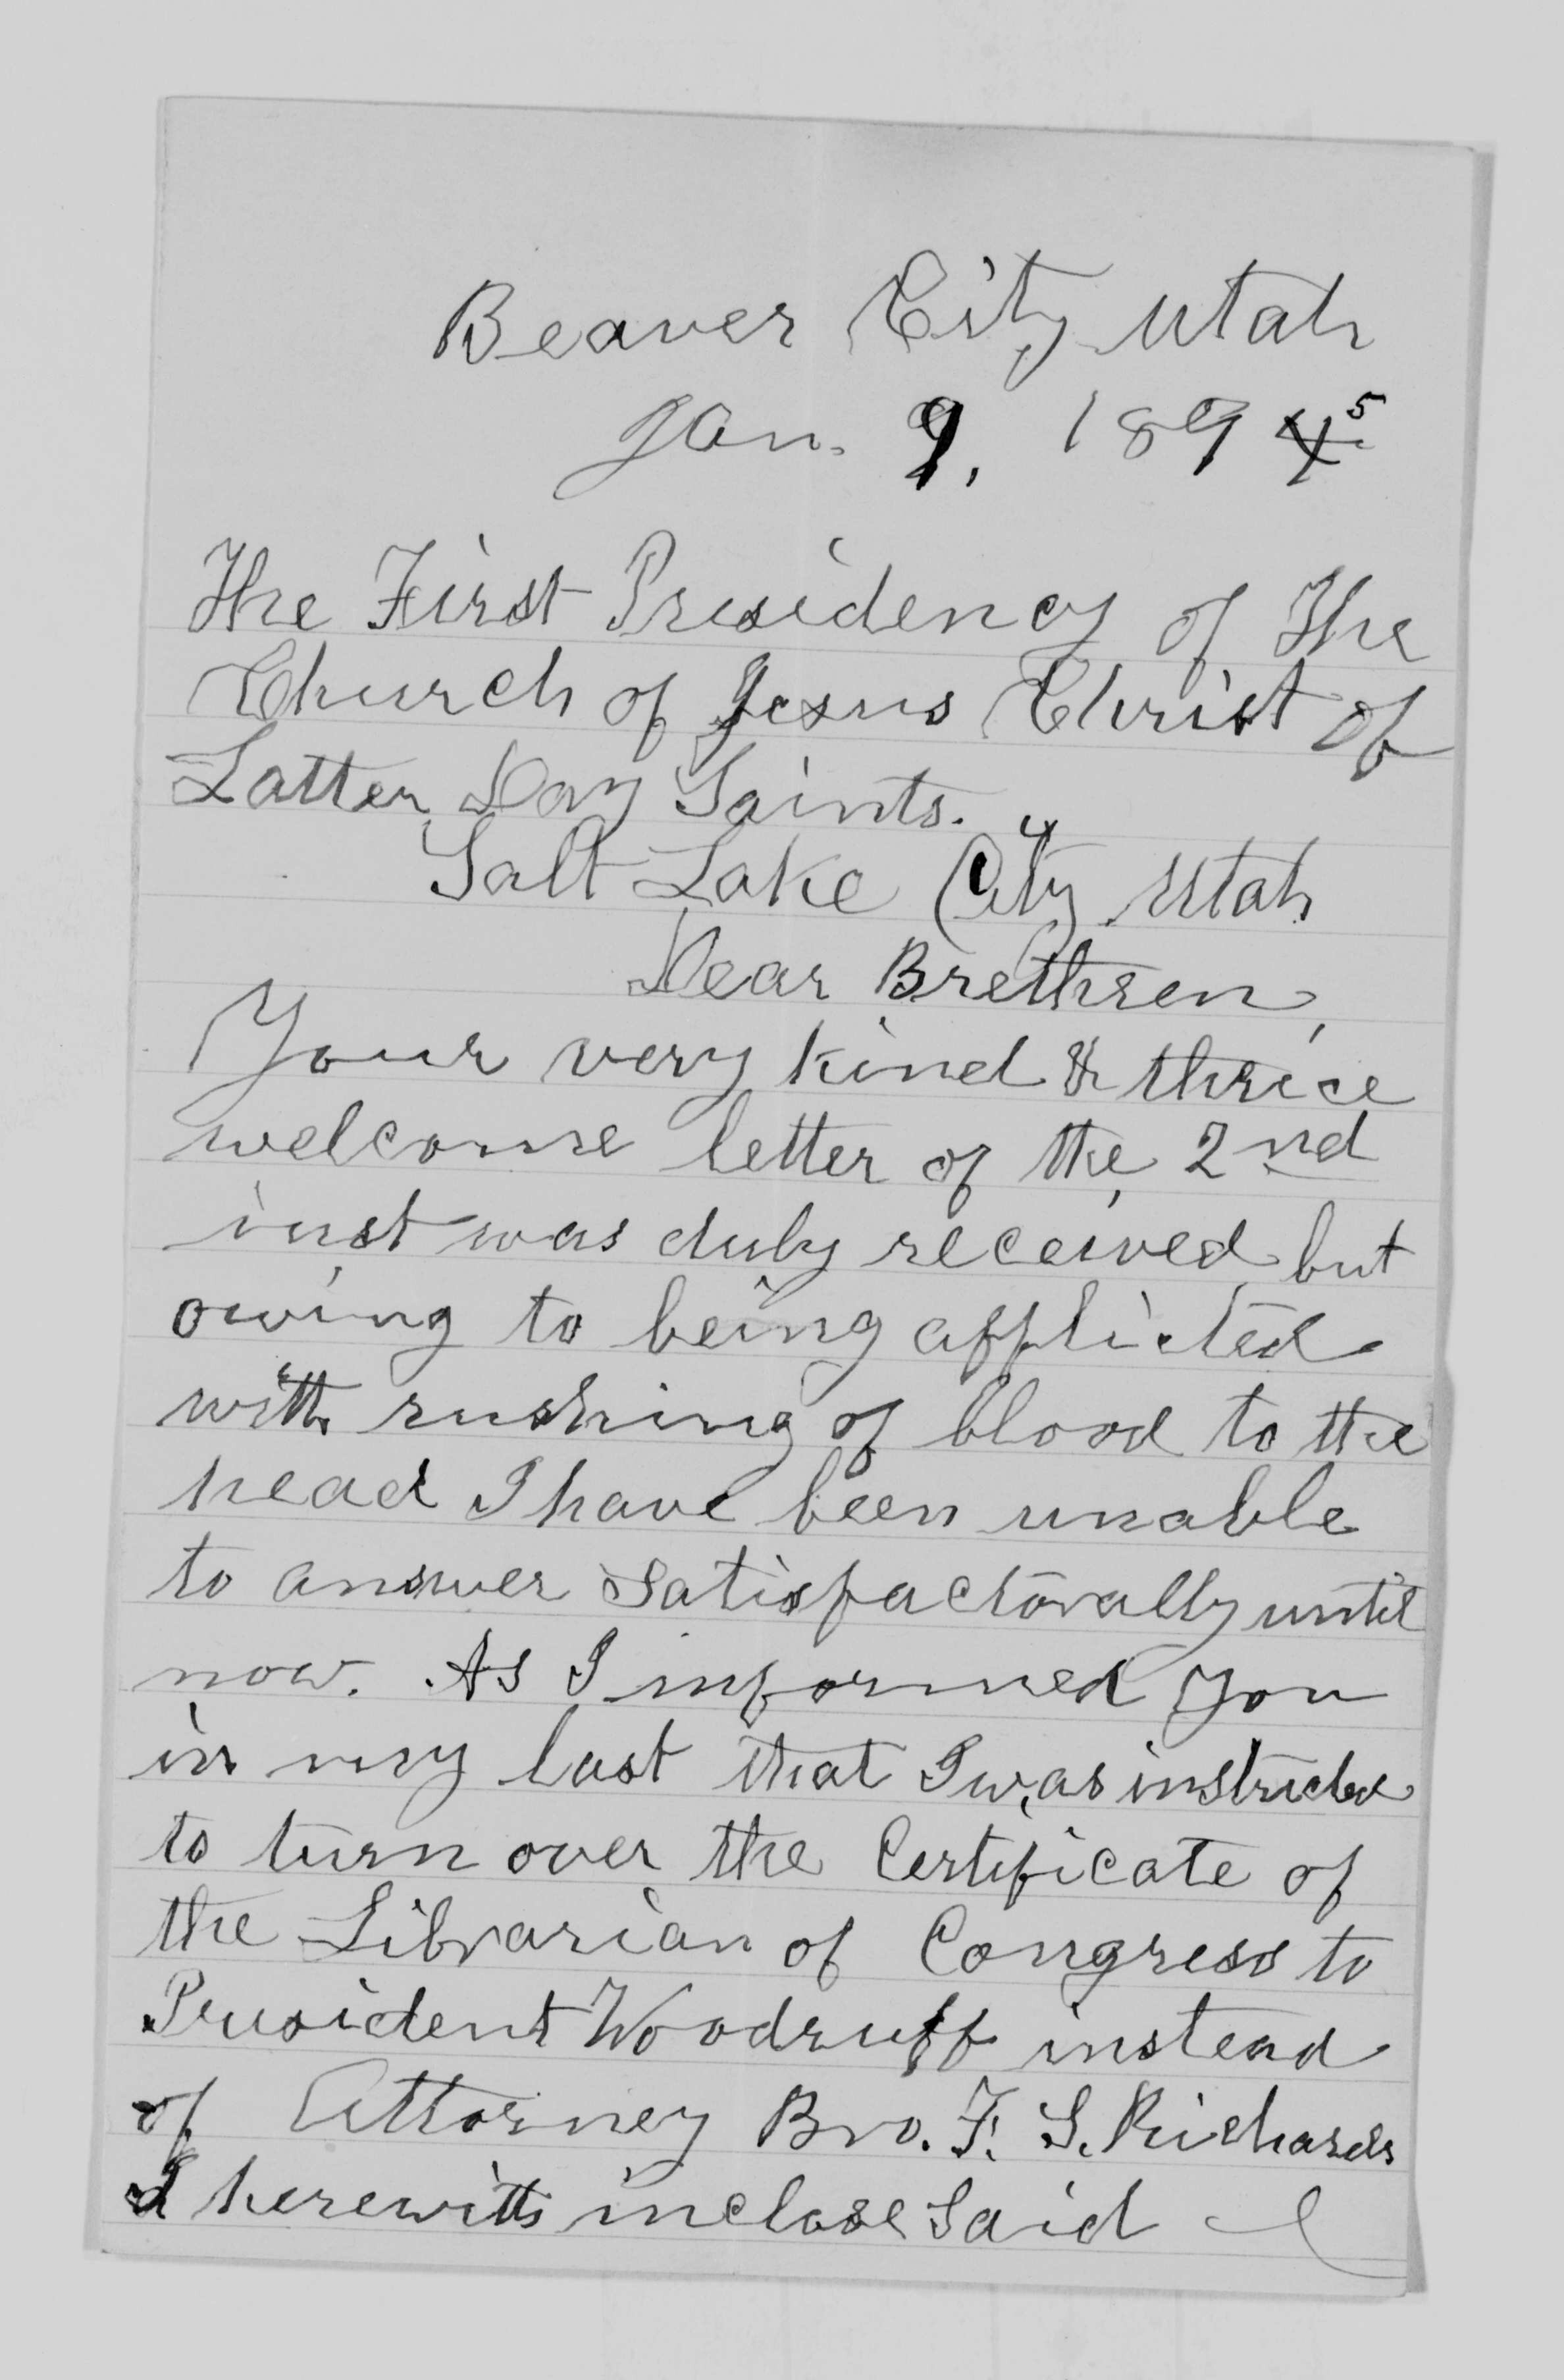 Beaver City Utah
Jan. 9, 1894 5
The First Presidency of The
Church of Jesus Christ of
Latter Day Saints.
Salt Lake City Utah
Dear Brethren,
Your very kind & thrice
welcome letter of the 2nd
inst was duly received but
owing to being afflicted
with rushing of blood to the
head I have been unable
to answer satisfactorally until
now. As I informed you
in my last that I was instructed
to turn over the Certificate of
the Librarian of Congress to
President Woodruff instead
of Attorney Bro. F. S. Richards
I herewith inclose said